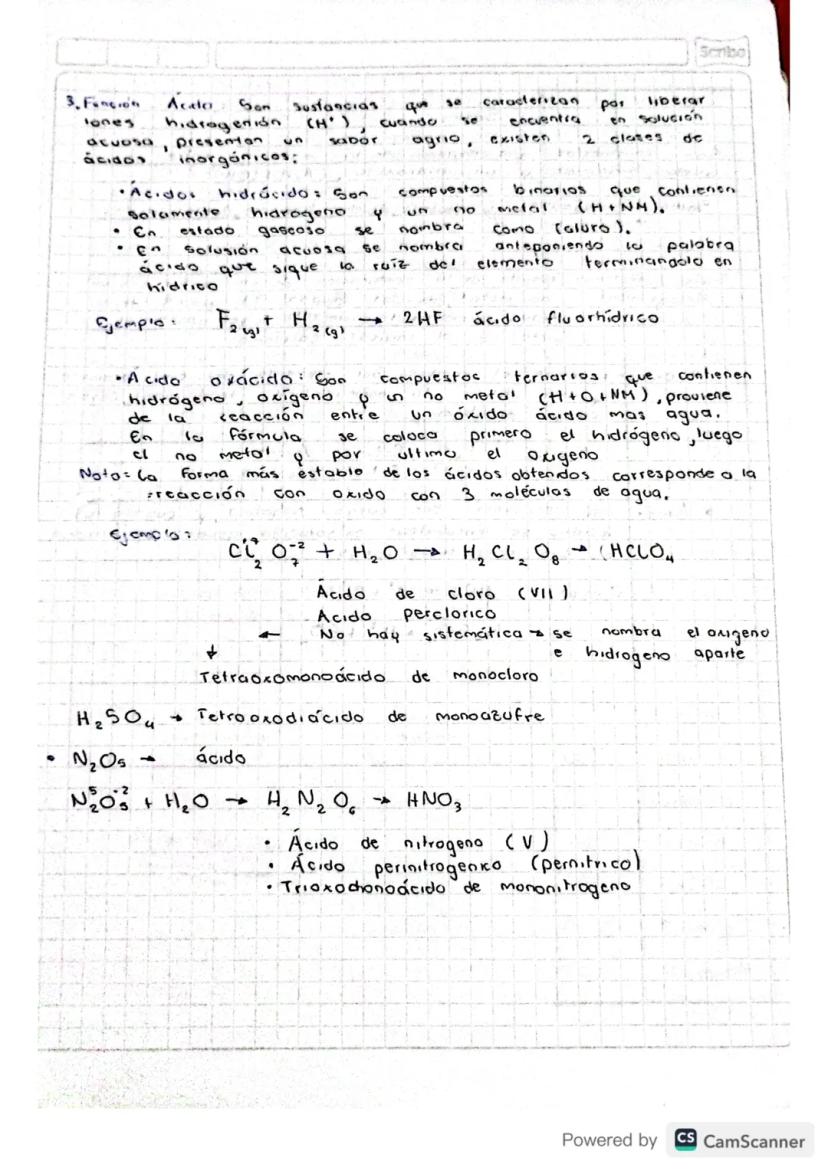 Scribe
3. Función Ácida: Son sustancias que se caracterizan por liberar
iones hidrogenión (H⁺), cuando se encuentra en solución
acuosa, presentan un sabor agrio, existen 2 clases de
ácidos inorgánicos:
• Acidos hidrácido: Son compuestos binarios que contienen
solamente hidrogeno y un no metal (H+NM).
• En estado gascoso se nombra como (aluro).
• En solusión acuosa se nombra anteponiendo la palabra
ácido que sigue la raíz del elemento terminandolo en
hidrico
Ejemplo: F₂(g) + H₂(g) → 2HF ácido fluorhídrico
• Acido oxácido: Son compuestos ternarios que contienen
hidrógeno, oxígeno y un no metal (H+O+NM), proviene
de la reacción entre un óxido ácido mas agua.
En la fórmula se coloca primero el hidrógeno, luego
el no metal y por ultimo el oxigeno
Nota: La forma más estable de los ácidos obtenidos corresponde a la
reacción con oxido con 3 moléculas de agua.
Ejemplo:
Cl₂⁺⁷ O₇⁻² + H₂O → H₂ Cl₂ O₈ → HClO₄
Ácido de cloro (VII)
Acido perclorico
← No hay sistemática → se nombra el oxigeno
↓ e hidrogeno aparte
Tetraoxomonoácido de monocloro
H₂SO₄ → Tetrooxodiácido de monoazufre
• N₂O₅ → ácido
N₂⁵O₅⁻² + H₂O → H₂ N₂ O₆ → HNO₃
• Ácido de nitrogeno (V)
• Ácido perinitrogenico (pernitrico)
• Trioxodionoácido de mononitrogeno
Powered by CS CamScanner